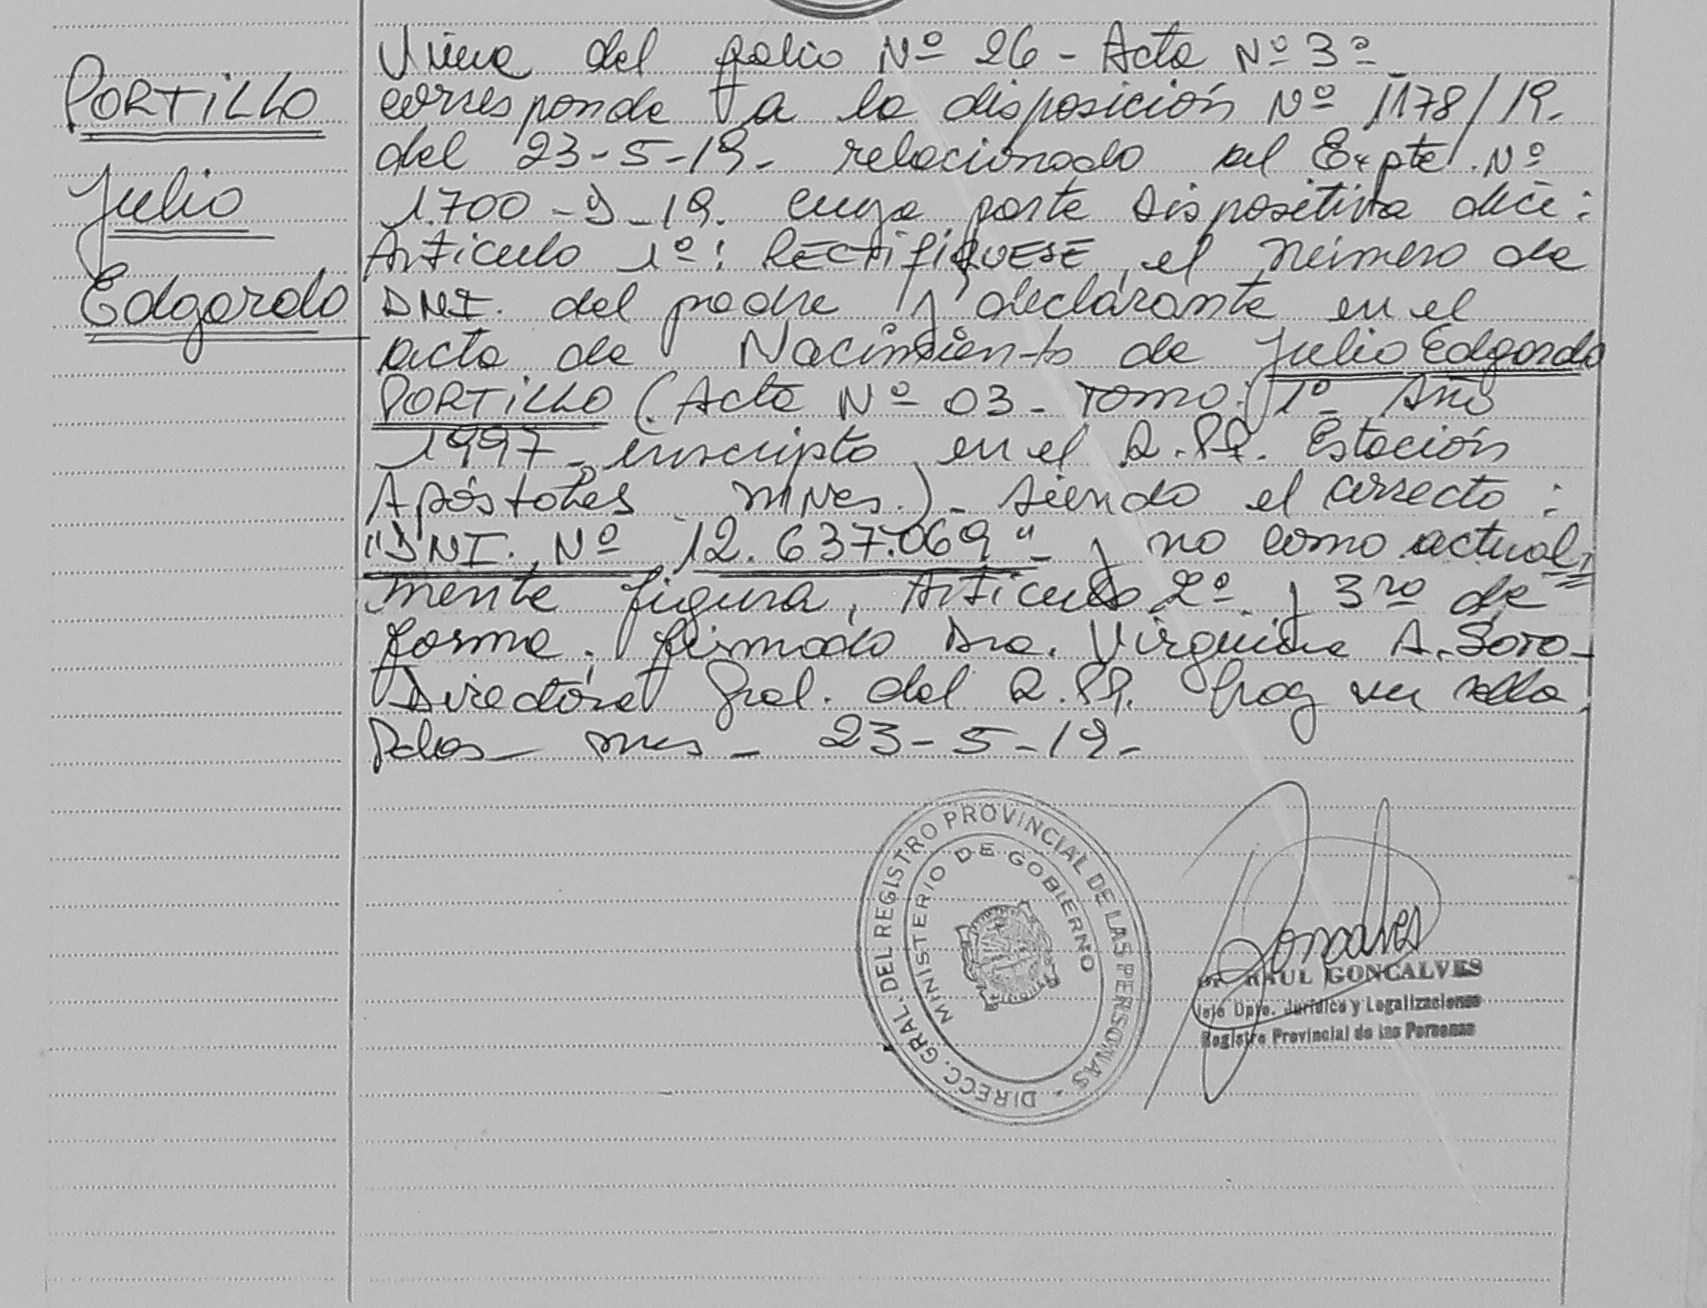 PORTILLO
Julio
Edgardo
Viene del folio Nº 26 - Acta Nº 3º
corresponde a la disposición Nº 1178/19.
del 23-5-19- relacionado al Expte. Nº
1.700 - 9 - 19. cuya parte dispositiva dice:
Articulo 1º: RECTIFIQUESE, el número de
DNI. del padre y declarante en el
acta de Nacimiento de Julio Edgardo
PORTILLO (Acta Nº 03 - Tomo: 1º - Año
1997 - inscripto en el R.PP. Estación
Apóstoles mnes.) - siendo el correcto:
"DNI. Nº 12.637.069" - y no como actual=
mente figura, Articulo 2º y 3ro de
forma. firmado Dra. Virginia A. Soto -
Directora Gral. del R.PP. hay un sello.
Pdas - mns - 23-5-19-
DIRECC. GRAL. DEL REGISTRO PROVINCIAL DE LAS PERSONAS -
MINISTERIO DE GOBIERNO
Goncalves
Dr RAUL GONCALVES
Jefe Dpto. Jurídico y Legalizaciones
Registro Provincial de las Personas